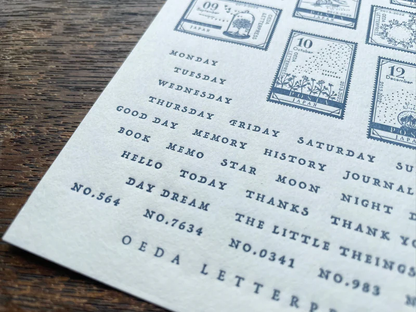 09
JAPAN
10
October
JAPAN
12
MONDAY
TUESDAY
WEDNESDAY
THURSDAY FRIDAY SATURDAY SU
GOOD DAY MEMORY HISTORY JOURNAL
BOOK MEMO STAR MOON NIGHT
HELLO TODAY THANKS THANK Y
DAY DREAM THE LITTLE THEINGS
NO.564 NO.7634 NO.0341 NO.983
OEDA LETTERP